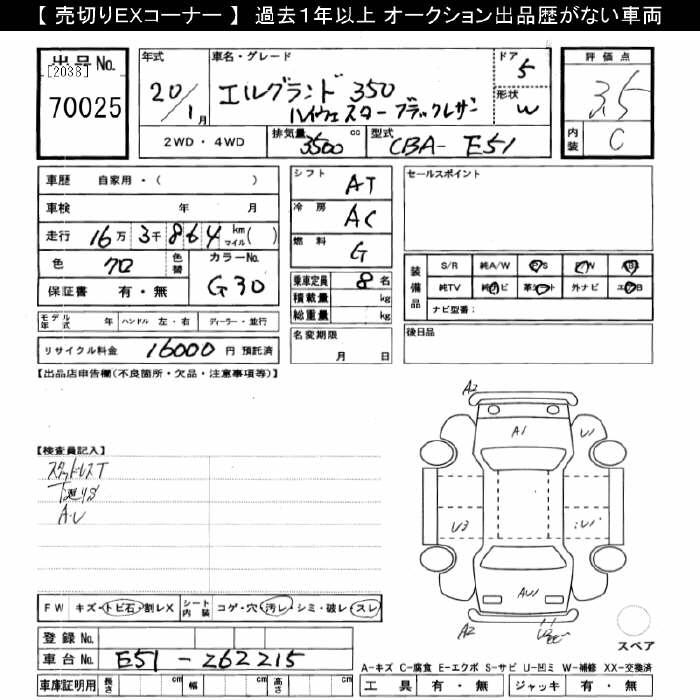 【 売切りEXコーナー 】 過去１年以上 オークション出品歴がない車両
出品No.
[2038]
70025
年式
20/1月
車名・グレード
エルグランド 350
ハイウェスター ブラックレザー
ドア
5
形状
W
評価点
3.5
内装
C
2WD・4WD
排気量
3500 cc
型式
CBA- E51
車歴 自家用・( )
車検 年 月
走行 16万 3千 864 km マイル( )
色 クロ 色替 カラーNo. G30
保証書 有・無
モデル年式 年 ハンドル 左・右 ディーラー・並行
リサイクル料金 16000 円 預託済
シフト AT
冷房 AC
燃料 G
乗車定員 8 名
積載量 kg
総重量 kg
名変期限
月 日
セールスポイント
装備品
S/R 純A/W
純TV 純ナビ 革シート 外ナビ
ナビ型番:
後日品
【出品店申告欄(不良箇所・欠品・注意事項等)】
【検査員記入】
スタッドレスT
A・U
A2
A1
U1
U3
U1
AU1
A2
スペア
FW キズ・トビ石・割レX シート内装 コゲ・穴・汚レ・シミ・破レ・スレ
登録No.
車台No. E51-262215
車庫証明用 長さ cm 幅 cm 高さ cm
A-キズ C-腐食 E-エクボ S-サビ U-凹ミ W-補修 XX-交換済
工具 有・無 ジャッキ 有・無